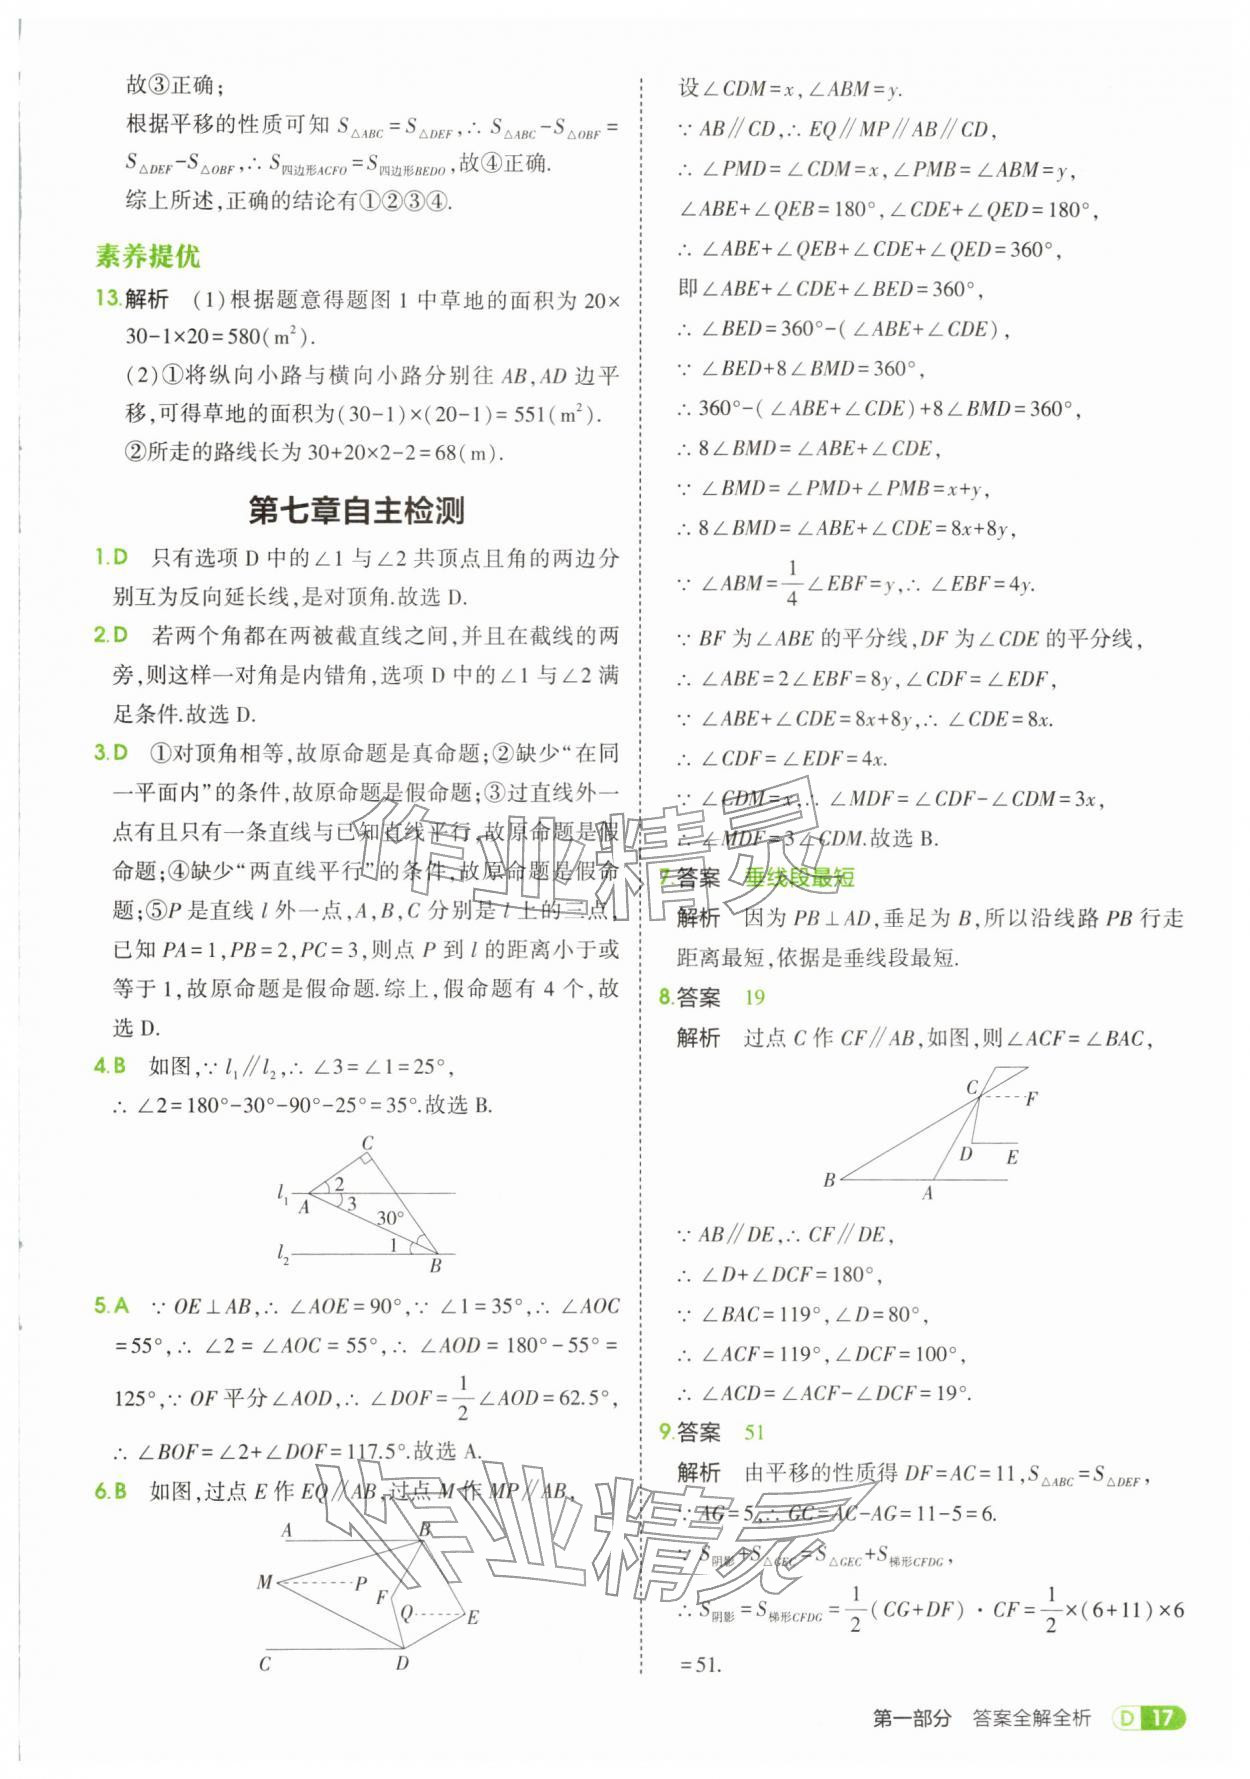 故③正确;
根据平移的性质可知 S△ABC=S△DEF,∴ S△ABC-S△OBF=
S△DEF-S△OBF,∴ S四边形ACFO=S四边形BEDO,故④正确.
综上所述,正确的结论有①②③④.
素养提优
13.解析 (1)根据题意得题图 1 中草地的面积为 20×
30-1×20=580(m²).
(2)①将纵向小路与横向小路分别往 AB,AD 边平
移,可得草地的面积为(30-1)×(20-1)=551(m²).
②所走的路线长为 30+20×2-2=68(m).
第七章自主检测
1.D 只有选项 D 中的∠1 与∠2 共顶点且角的两边分
别互为反向延长线,是对顶角.故选 D.
2.D 若两个角都在两被截直线之间,并且在截线的两
旁,则这样一对角是内错角,选项 D 中的∠1 与∠2 满
足条件.故选 D.
3.D ①对顶角相等,故原命题是真命题;②缺少“在同
一平面内”的条件,故原命题是假命题;③过直线外一
点有且只有一条直线与已知直线平行,故原命题是假
命题;④缺少“两直线平行”的条件,故原命题是假命
题;⑤P 是直线 l 外一点,A,B,C 分别是 l 上的三点,
已知 PA=1,PB=2,PC=3,则点 P 到 l 的距离小于或
等于 1,故原命题是假命题.综上,假命题有 4 个,故
选 D.
4.B 如图,∵ l₁∥l₂,∴ ∠3=∠1=25°,
∴ ∠2=180°-30°-90°-25°=35°.故选 B.
C
l₁ A 2 3
30°
l₂ 1 B
5.A ∵ OE⊥AB,∴ ∠AOE=90°,∵ ∠1=35°,∴ ∠AOC
=55°,∴ ∠2=∠AOC=55°,∴ ∠AOD=180°-55°=
125°,∵ OF 平分∠AOD,∴ ∠DOF=1/2∠AOD=62.5°,
∴ ∠BOF=∠2+∠DOF=117.5°.故选 A.
6.B 如图,过点 E 作 EQ∥AB,过点 M 作 MP∥AB,
A B
M P F
Q E
C D
设∠CDM=x,∠ABM=y.
∵ AB∥CD,∴ EQ∥MP∥AB∥CD,
∴ ∠PMD=∠CDM=x,∠PMB=∠ABM=y,
∠ABE+∠QEB=180°,∠CDE+∠QED=180°,
∴ ∠ABE+∠QEB+∠CDE+∠QED=360°,
即∠ABE+∠CDE+∠BED=360°,
∴ ∠BED=360°-(∠ABE+∠CDE),
∵ ∠BED+8∠BMD=360°,
∴ 360°-(∠ABE+∠CDE)+8∠BMD=360°,
∴ 8∠BMD=∠ABE+∠CDE,
∵ ∠BMD=∠PMD+∠PMB=x+y,
∴ 8∠BMD=∠ABE+∠CDE=8x+8y,
∵ ∠ABM=1/4∠EBF=y,∴ ∠EBF=4y.
∵ BF 为∠ABE 的平分线,DF 为∠CDE 的平分线,
∴ ∠ABE=2∠EBF=8y,∠CDF=∠EDF,
∵ ∠ABE+∠CDE=8x+8y,∴ ∠CDE=8x.
∴ ∠CDF=∠EDF=4x.
∵ ∠CDM=x,∴ ∠MDF=∠CDF-∠CDM=3x,
∴ ∠MDF=3∠CDM.故选 B.
7.答案 垂线段最短
解析 因为 PB⊥AD,垂足为 B,所以沿线路 PB 行走
距离最短,依据是垂线段最短.
8.答案 19
解析 过点 C 作 CF∥AB,如图,则∠ACF=∠BAC,
C F
D E
B A
∵ AB∥DE,∴ CF∥DE,
∴ ∠D+∠DCF=180°,
∵ ∠BAC=119°,∠D=80°,
∴ ∠ACF=119°,∠DCF=100°,
∴ ∠ACD=∠ACF-∠DCF=19°.
9.答案 51
解析 由平移的性质得 DF=AC=11,S△ABC=S△DEF,
∵ AG=5,∴ GC=AC-AG=11-5=6.
∵ S阴影+S△GEC=S△GEC+S梯形CFDG,
∴ S阴影=S梯形CFDG=1/2(CG+DF)·CF=1/2×(6+11)×6
=51.
第一部分 答案全解全析 D 17
作业精灵
作业精灵